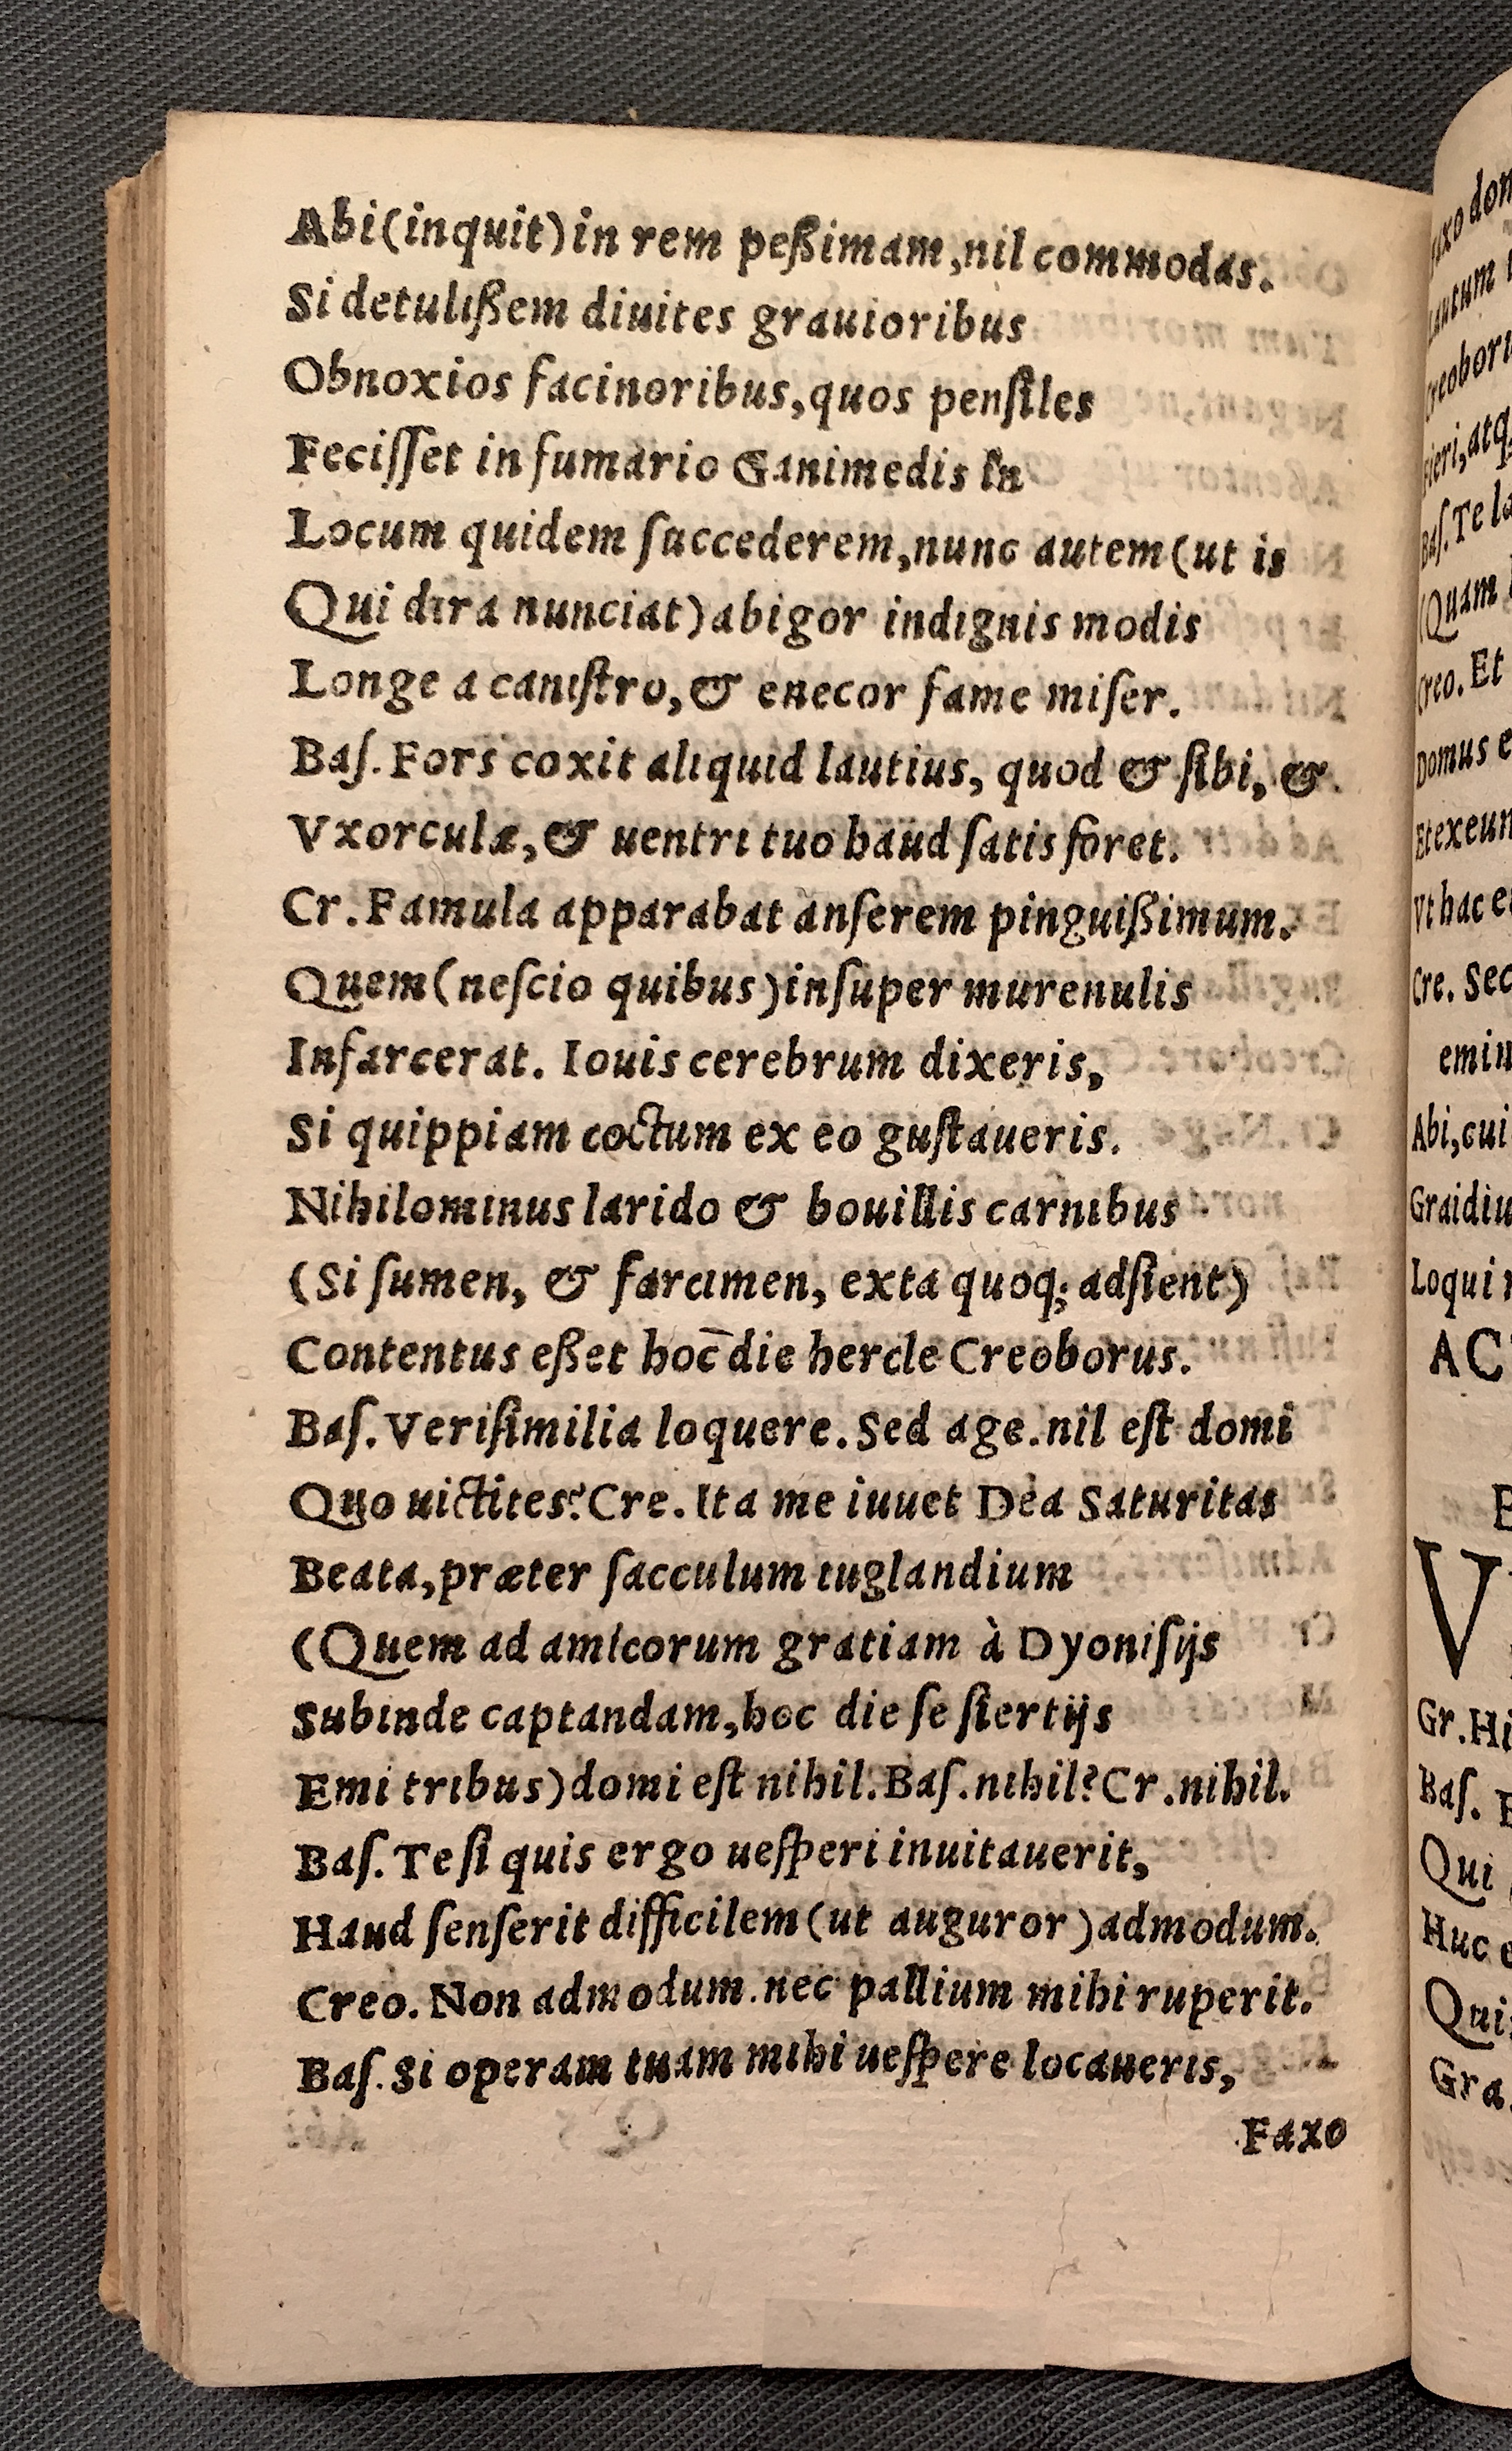 Abi(inquit)in rem peßimam,nil commodas.
Si detulißem diuites grauioribus
Obnoxios facinoribus,quos penſiles
Feciſſet in fumario Ganimedis in
Locum quidem ſuccederem,nunc autem(ut is
Qui dira nunciat)abigor indignis modis
Longe a caniſtro,& enecor fame miſer.
Baſ. Fors coxit aliquid lautius, quod & ſibi, &
Vxorculæ,& uentri tuo haud ſatis foret.
Cr. Famula apparabat anſerem pinguißimum.
Quem(neſcio quibus)inſuper murenulis
Infarcerat. Iouis cerebrum dixeris,
Si quippiam coctum ex eo guſtaueris.
Nihilominus larido & bouillis carnibus
(Si ſumen, & farcimen, exta quoq; adſient)
Contentus eßet hoc̄ die hercle Creoborus.
Baſ. Veriſimilia loquere. Sed age.nil eſt domi
Quo uictites? Cre. Ita me iuuet Dea Saturitas
Beata,præter ſacculum iuglandium
(Quem ad amicorum gratiam à Dyoniſijs
Subinde captandam,hoc die ſe ſtertijs
Emi tribus)domi eſt nihil. Baſ. nihil? Cr. nihil.
Baſ. Te ſi quis ergo ueſperi inuitauerit,
Haud ſenſerit difficilem(ut auguror)admodum.
Creo. Non admodum.nec pallium mihi ruperit.
Baſ. Si operam tuam mihi ueſpere locaueris,
Faxo
Creoboru
Baſ. Te
(Quam
Creo. Et
Domus
Vt hac
Cre. Sec
Abi,cui
Loqui
AC
V
Gr. Hi
Baſ.
Qui
Huc
Gra.